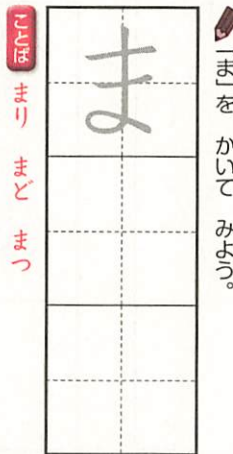 「ま」を かいて みよう。
ま
ことば まり まど まつ